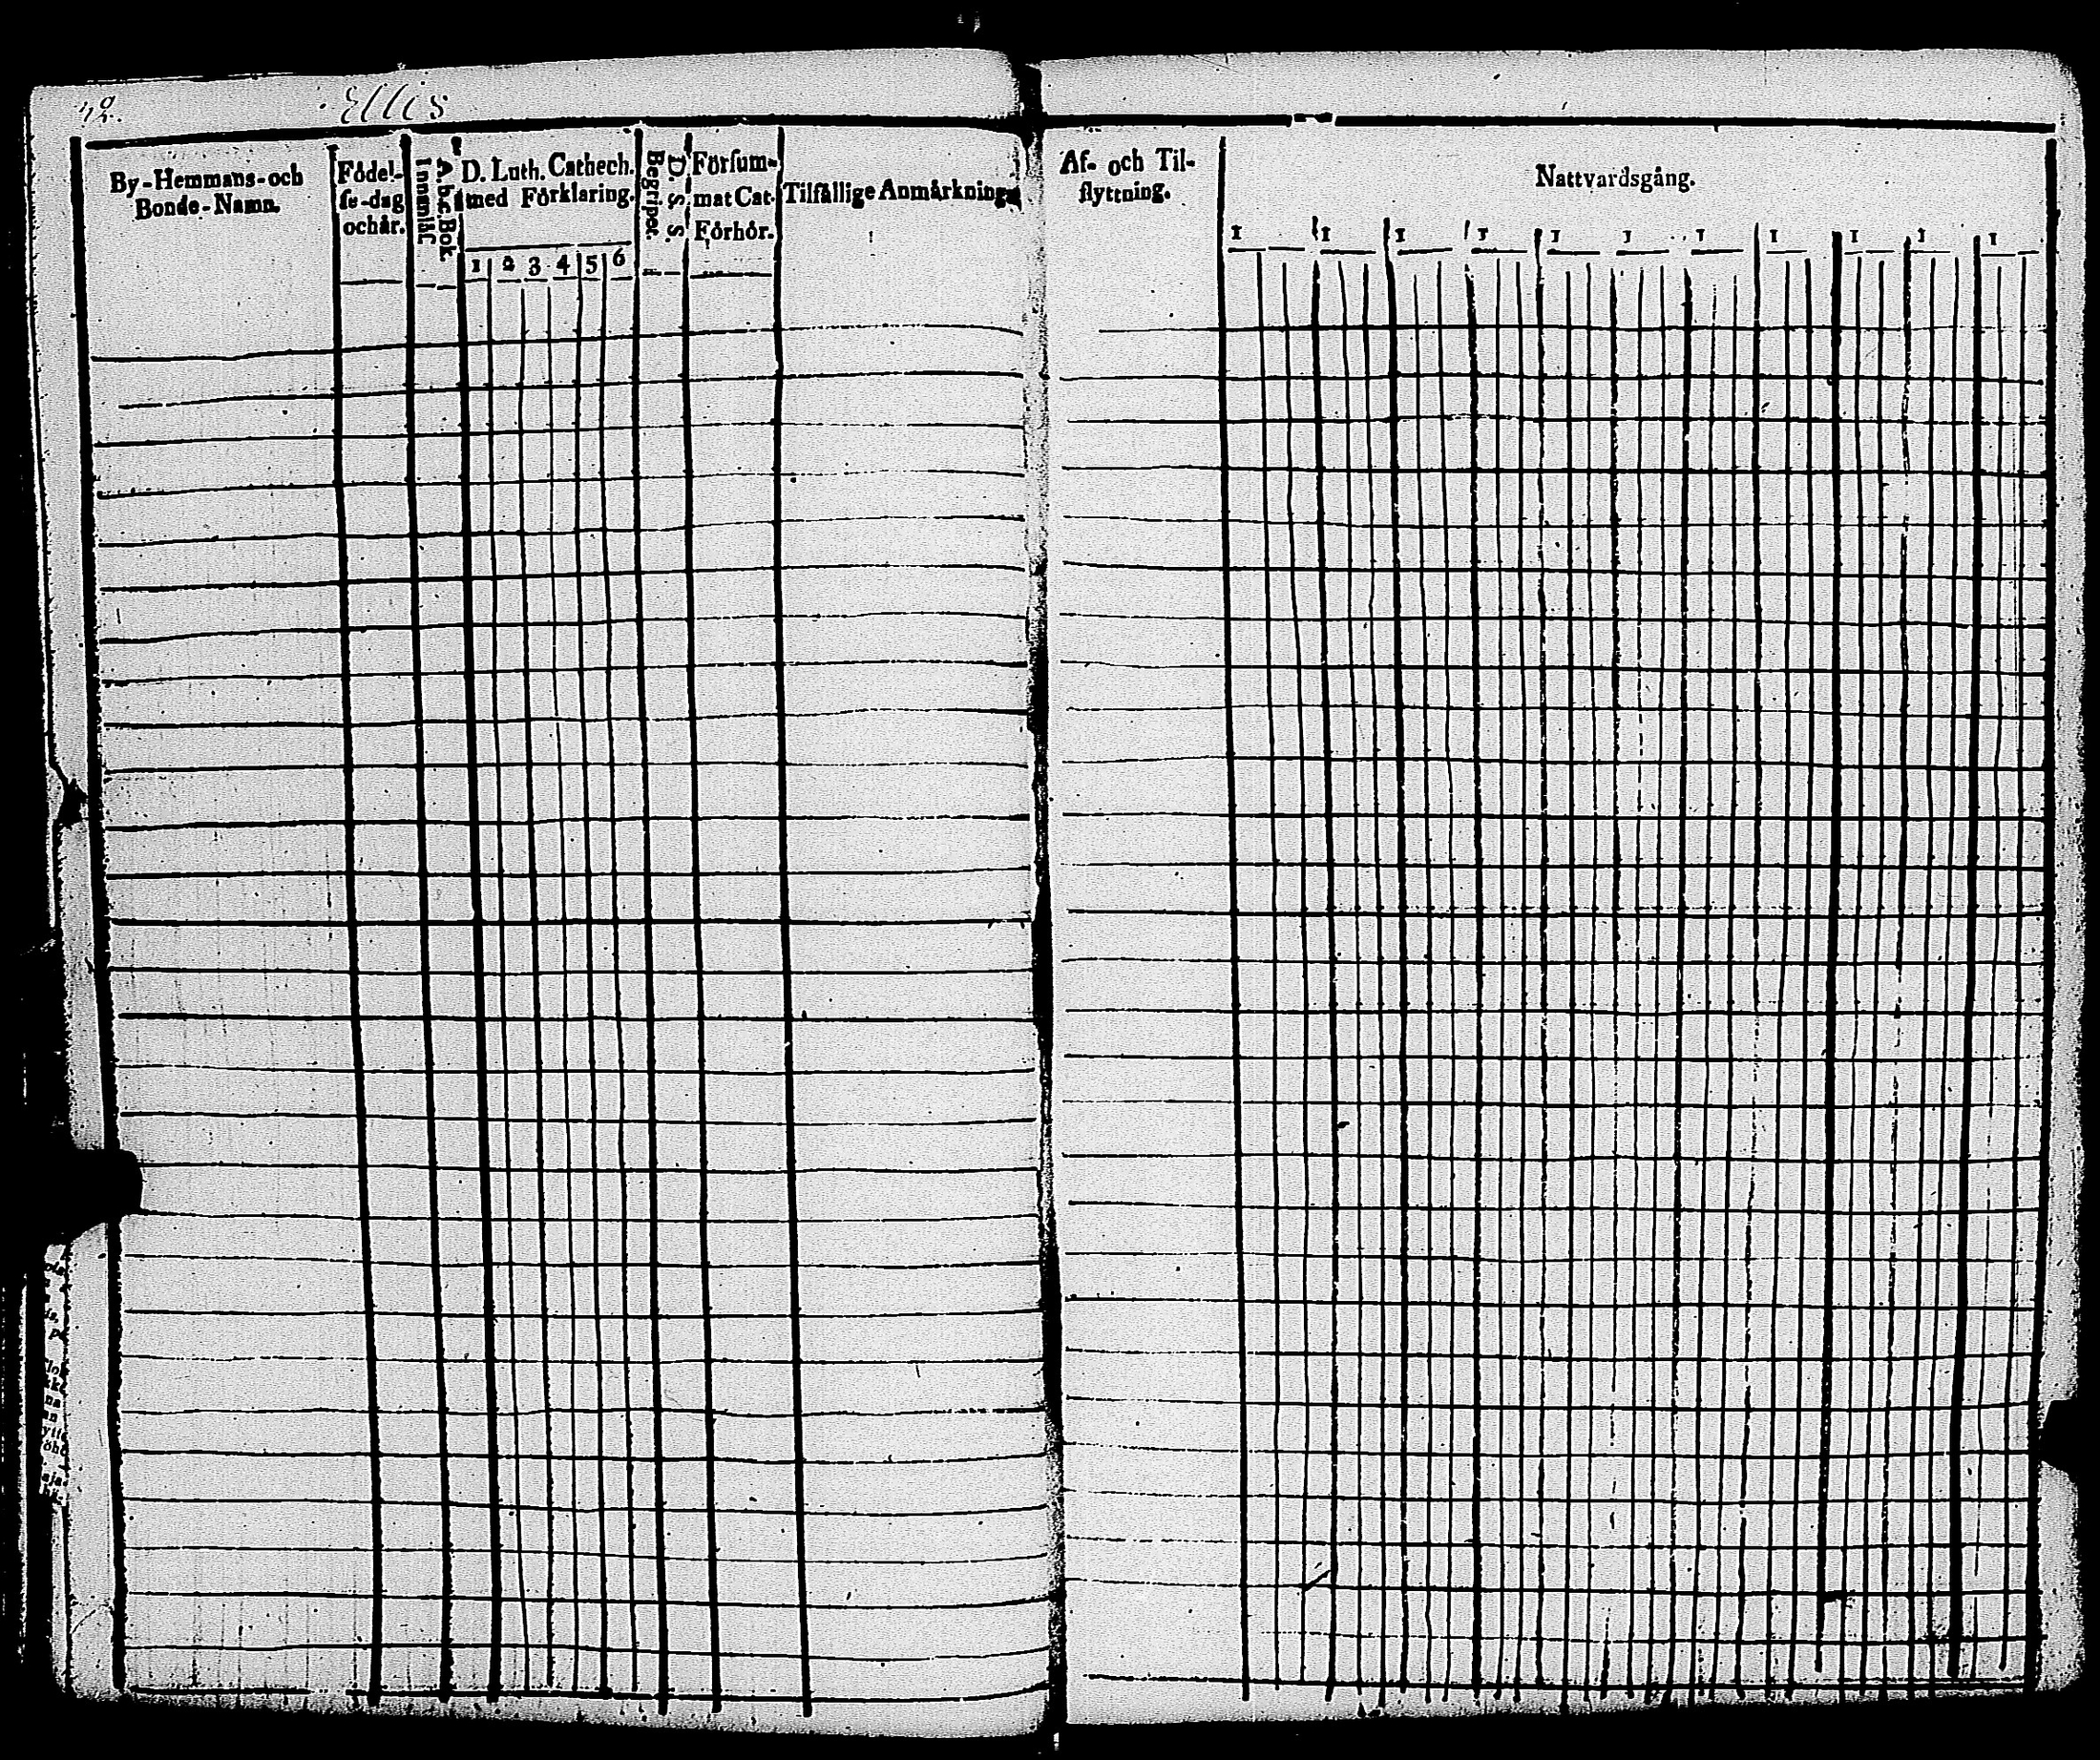 Ellis
By-Hemmans-och
Bonde-Namn.
Födel-
se-dag
och år.
A.b.c.Bok.
Innenläs.
D. Luth. Cathech.
med Förklaring.
1 2 3 4 5 6
D. S. S.
Begriper.
Försum-
mat Cat.
Förhör.
Tilfällige Anmärkning.
Af- och Til-
flyttning.
Nattvardsgång.
1 1 1 1 1 1 1 1 1 1 1